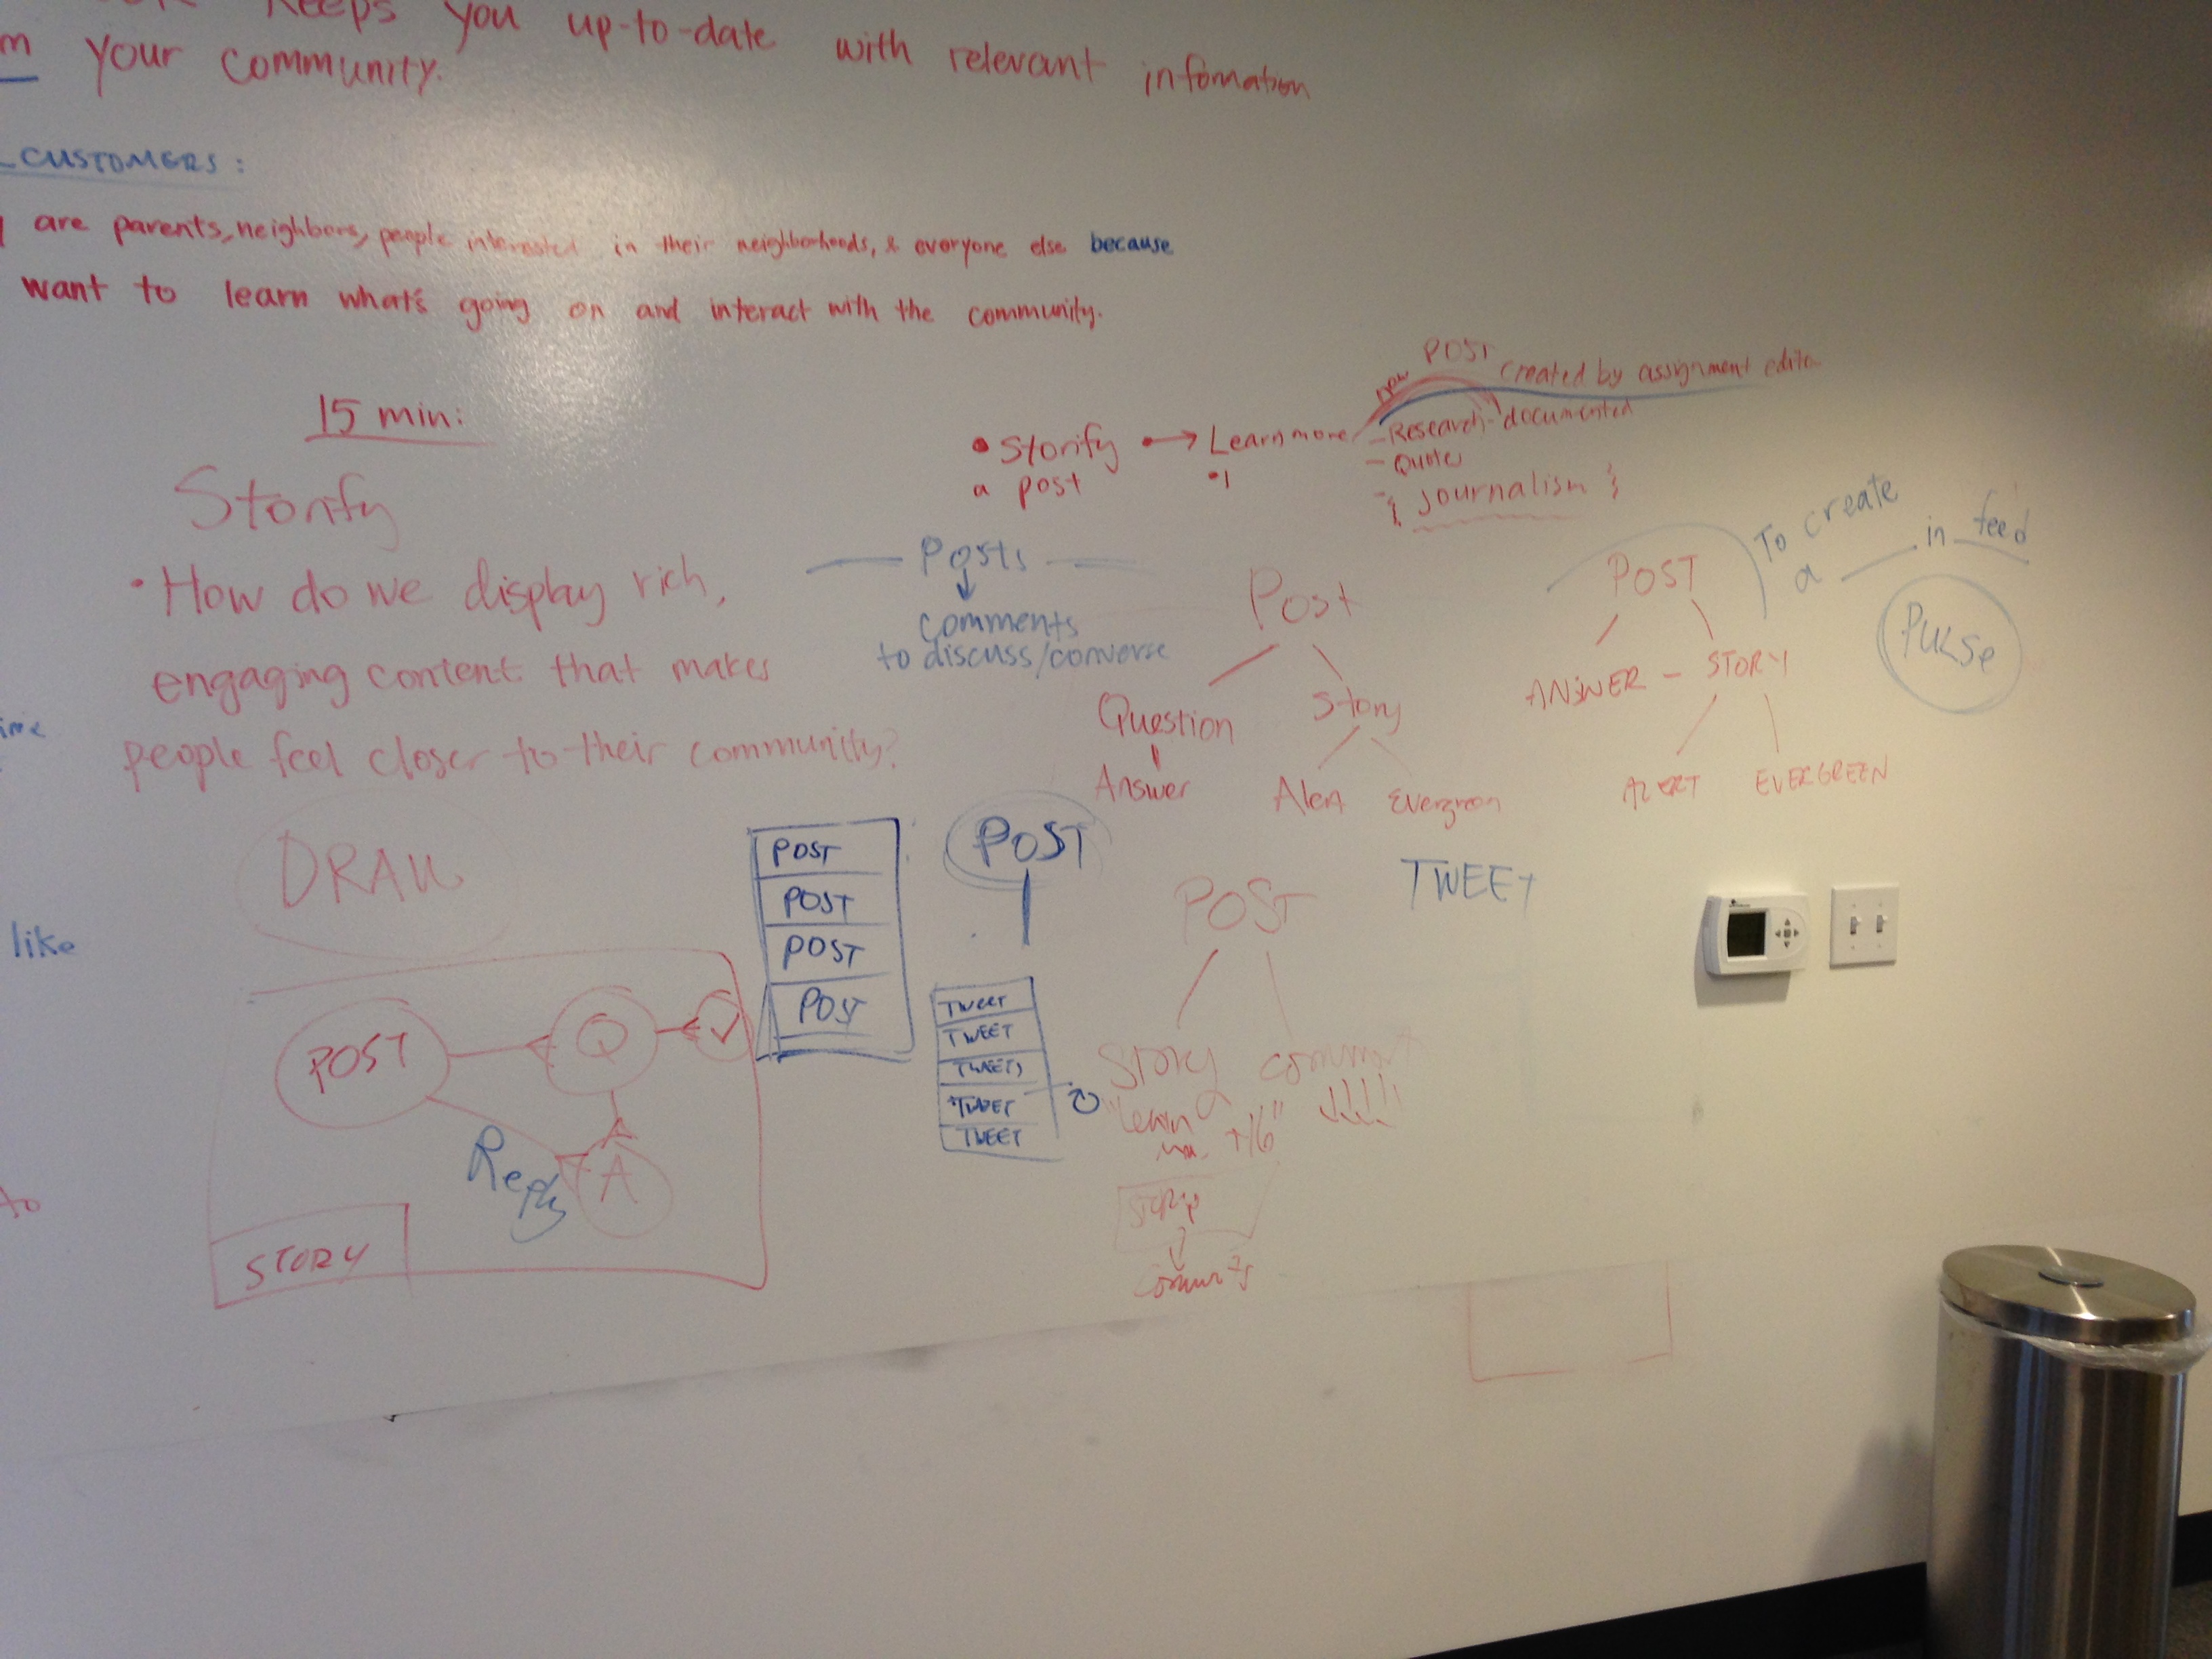 Keeps you up-to-date with relevant infomation
m your community.
CUSTOMERS:
are parents, neighbors, people interested in their neighborhoods, & everyone else because
want to learn what's going on and interact with the community.
15 min:
Storify
• How do we display rich,
engaging content that makes
people feel closer to their community?
• Storify → Learn more
a post
•1
POST created by assignment
- Research - documented
- Quotes
{ journalism }
Posts
comments
to discuss/converse
Post
Question Story
Answer Alert Evergreen
POST
ANSWER - STORY
ALERT EVERGREEN
To create
a ___ in feed
Pulse
like
to
DRAW
POST
Q
A
Reply
STORY
POST
POST
POST
POST
POST
TWEET
TWEET
TWEETS
TWEET
TWEET
POST
TWEET
Story comment
"Learn